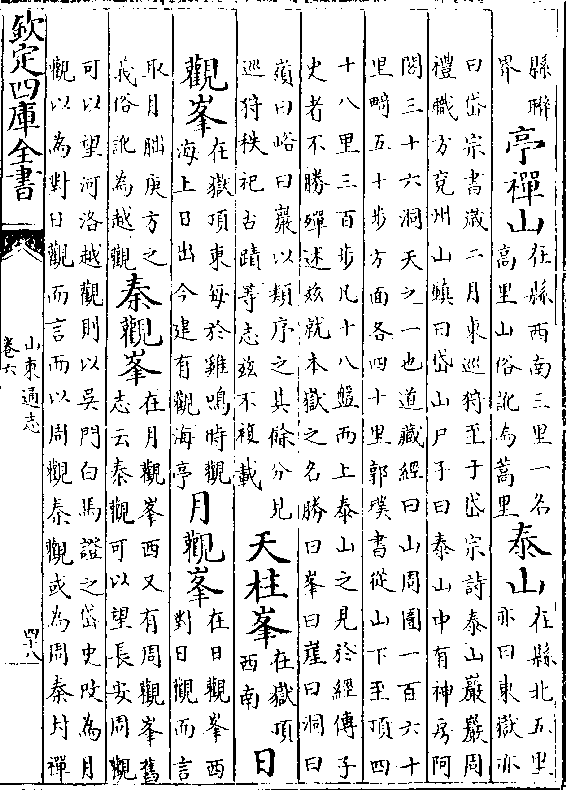 縣聯
界
亭禪山
在縣西南三里一名
高里山俗訛為蒿里
泰山
在縣北五里
亦曰東嶽亦
曰岱宗書歲二月東巡狩至于岱宗詩泰山巖巖周
禮職方兗州山鎮曰岱山尸子曰泰山中有神房阿
閣三十六洞天之一也道藏經曰山周圍一百六十
里畸五十步方面各四十里郭璞書從山下至頂四
十八里三百步凡十八盤而上泰山之見於經傳子
史者不勝殫述兹就本嶽之名勝曰峯曰崖曰洞曰
嶺曰峪曰巖以類序之其餘分見
巡狩秩祀古蹟等志兹不複載
天柱峯
在嶽頂
西南
日
觀峯
在嶽頂東每於雞鳴時觀
海上日出今建有觀海亭
月觀峯
在日觀峯西
對日觀而言
取月朏庚方之
義俗訛為越觀
秦觀峯
在月觀峯西又有周觀峯舊
志云秦觀可以望長安周觀
可以望河洛越觀則以吳門白馬證之岱史改為月
觀以為對日觀而言而以周觀秦觀或為周秦封禪
欽定四庫全書
山東通志
卷六
四十八